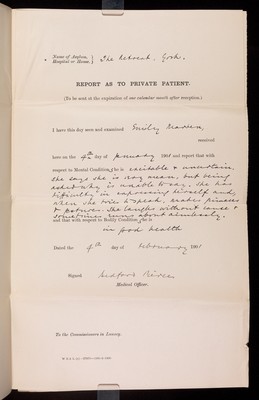 Name of Asylum, Hospital or House. } The Retreat, York.
REPORT AS TO PRIVATE PATIENT.
(To be sent at the expiration of one calendar month after reception.)
I have this day seen and examined Emily
received
here on the 4th day of January 190 and report that with
respect to Mental Condition she is excitable & uncertain.
She says she is very mean, but being
asked why is unable to say. She has
difficulty in expressing herself and
when she tries to speak, makes
She laughs without cause &
sometimes runs about aimlessly.
and that with respect to Bodily Condition she is
in good health
Dated the 4th day of February 190
Signed Bedford Pierce
Medical Officer.
To the Commissioners in Lunacy.